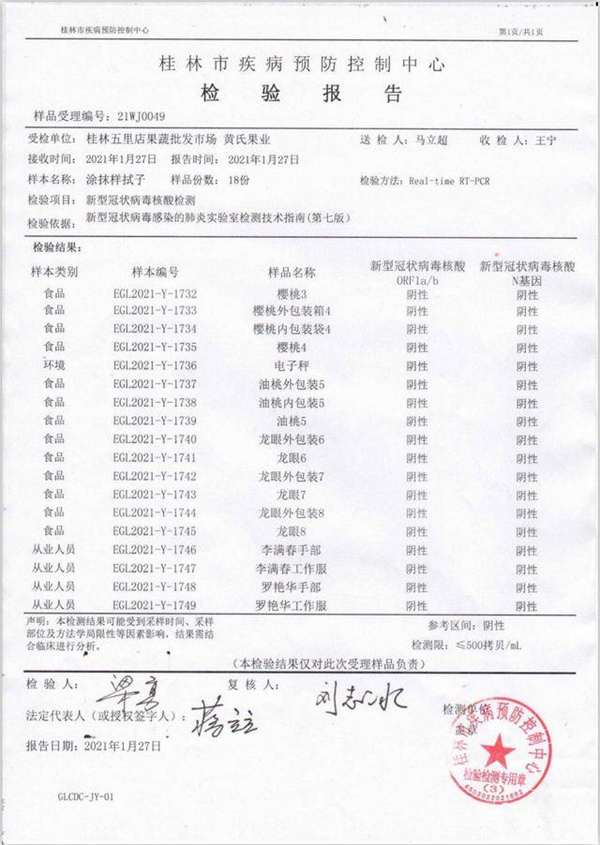 桂林市疾病预防控制中心 第1页/共1页
桂林市疾病预防控制中心
检验报告
样品受理编号：21WJ0049
受检单位： 桂林五里店果蔬批发市场 黄氏果业 送检人：马立超 收检人：王宁
接收时间： 2021年1月27日 报告时间： 2021年1月27日
样本名称： 涂抹样拭子 样品份数： 18份 检验方法：Real-time RT-PCR
检验项目：新型冠状病毒核酸检测
检验依据：新型冠状病毒感染的肺炎实验室检测技术指南(第七版)
检验结果：
样本类别 样本编号 样品名称 新型冠状病毒核酸 新型冠状病毒核酸
ORF1a/b N基因
食品 EGL2021-Y-1732 樱桃3 阴性 阴性
食品 EGL2021-Y-1733 樱桃外包装箱4 阴性 阴性
食品 EGL2021-Y-1734 樱桃内包装袋4 阴性 阴性
食品 EGL2021-Y-1735 樱桃4 阴性 阴性
环境 EGL2021-Y-1736 电子秤 阴性 阴性
食品 EGL2021-Y-1737 油桃外包装5 阴性 阴性
食品 EGL2021-Y-1738 油桃内包装5 阴性 阴性
食品 EGL2021-Y-1739 油桃5 阴性 阴性
食品 EGL2021-Y-1740 龙眼外包装6 阴性 阴性
食品 EGL2021-Y-1741 龙眼6 阴性 阴性
食品 EGL2021-Y-1742 龙眼外包装7 阴性 阴性
食品 EGL2021-Y-1743 龙眼7 阴性 阴性
食品 EGL2021-Y-1744 龙眼外包装8 阴性 阴性
食品 EGL2021-Y-1745 龙眼8 阴性 阴性
从业人员 EGL2021-Y-1746 李满春手部 阴性 阴性
从业人员 EGL2021-Y-1747 李满春工作服 阴性 阴性
从业人员 EGL2021-Y-1748 罗艳华手部 阴性 阴性
从业人员 EGL2021-Y-1749 罗艳华工作服 阴性 阴性
声明：本检测结果可能受到采样时间、采样 参考区间：阴性
部位及方法学局限性等因素影响，结果需结
合临床进行分析。 检测限：≤500拷贝/mL
(本检验结果仅对此次受理样品负责)
检验人： 复核人：
检测单位
盖章
法定代表人（或授权签字人）：
报告日期：2021年1月27日
桂林市疾病预防控制中心
检验检测专用章
(3)
GLCDC-JY-01